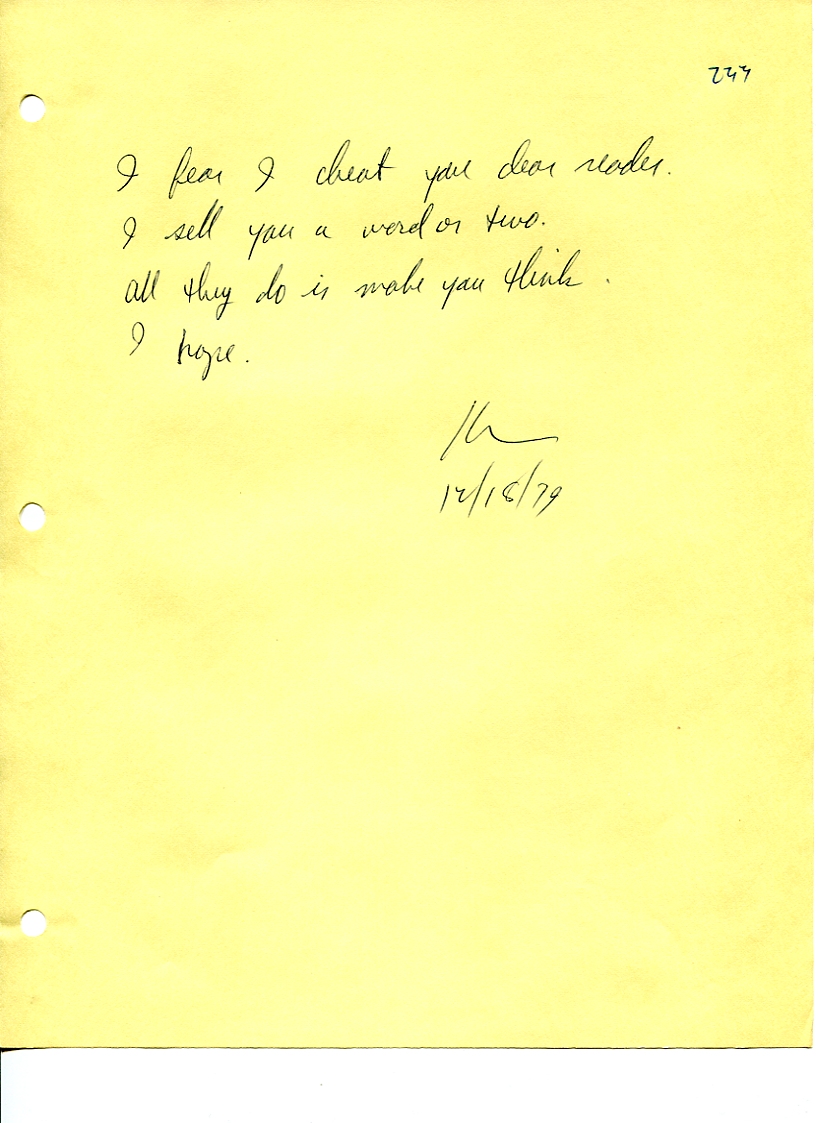 I fear I cheat you dear reader.
I sell you a word or two.
all they do is make you think.
I hope.
12/18/79